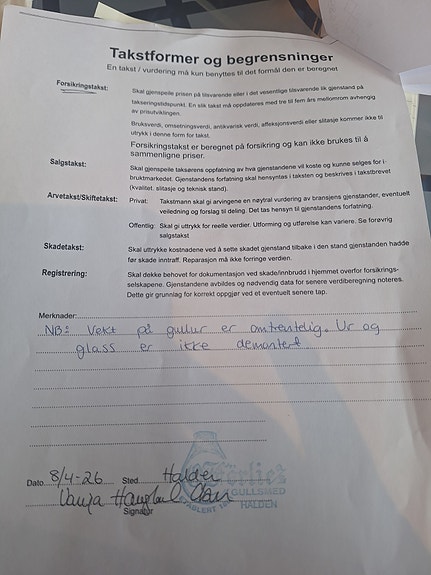 Takstformer og begrensninger
En takst / vurdering må kun benyttes til det formål den er beregnet
Forsikringstakst:
Skal gjenspeile prisen på tilsvarende eller i det vesentlige tilsvarende lik gjenstand på
takseringstidspunkt. En slik takst må oppdateres med tre til fem års mellomrom avhengig
av prisutviklingen.
Bruksverdi, omsetningsverdi, antikvarisk verdi, affeksjonsverdi eller slitasje kommer ikke til
utrykk i denne form for takst.
Forsikringstakst er beregnet på forsikring og kan ikke brukes til å
sammenligne priser.
Salgstakst:
Skal gjenspeile taksørens oppfatning av hva gjenstanden vil koste og kunne selges for i
bruktmarkedet. Gjenstandens forfatning skal hensyntas i taksten og beskrives i takstbrevet
(kvalitet, slitasje og teknisk stand).
Arvetakst/Skiftetakst: Privat: Takstmann skal gi arvingene en nøytral vurdering av bransjens gjenstander, eventuelt
veiledning og forslag til deling. Det tas hensyn til gjenstandens forfatning.
Offentlig: Skal gi uttrykk for reelle verdier. Utforming og utførelse kan variere. Se forøvrig
salgstakst
Skadetakst: Skal uttrykke kostnadene ved å sette skadet gjenstand tilbake i den stand gjenstanden hadde
før skade inntraff. Reparasjon må ikke forringe verdien.
Registrering: Skal dekke behovet for dokumentasjon ved skade/innbrudd i hjemmet overfor forsikrings-
selskapene. Gjenstandene avbildes og nødvendig data for senere verdiberegning noteres.
Dette gir grunnlag for korrekt oppgjør ved et eventuelt senere tap.
Merknader:
NB: Vekt på gullur er omtrentelig. Ur og
glass er ikke demontert
Dato 8/4-26 Sted Halden
Vanja
Signatur
GULLSMED
ETABLERT
HALDEN